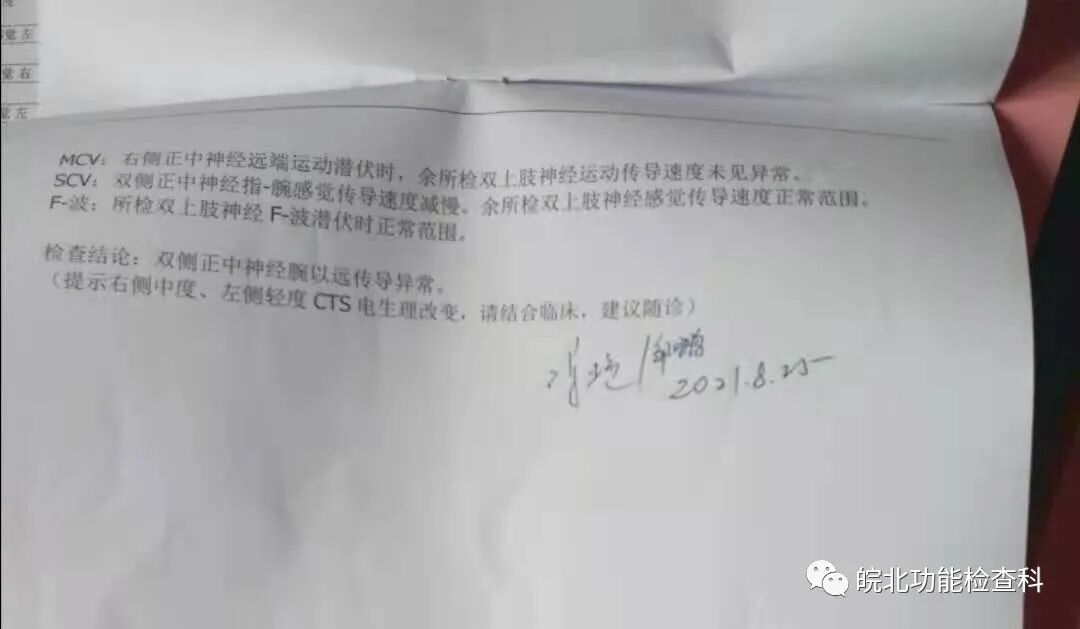 觉左
觉右
觉左
MCV：右侧正中神经远端运动潜伏时，余所检双上肢神经运动传导速度未见异常。
SCV：双侧正中神经指-腕感觉传导速度减慢。余所检双上肢神经感觉传导速度正常范围。
F-波：所检双上肢神经 F-波潜伏时正常范围。
检查结论：双侧正中神经腕以远传导异常。
（提示右侧中度、左侧轻度 CTS 电生理改变，请结合临床，建议随诊）
2021.8.25
皖北功能检查科